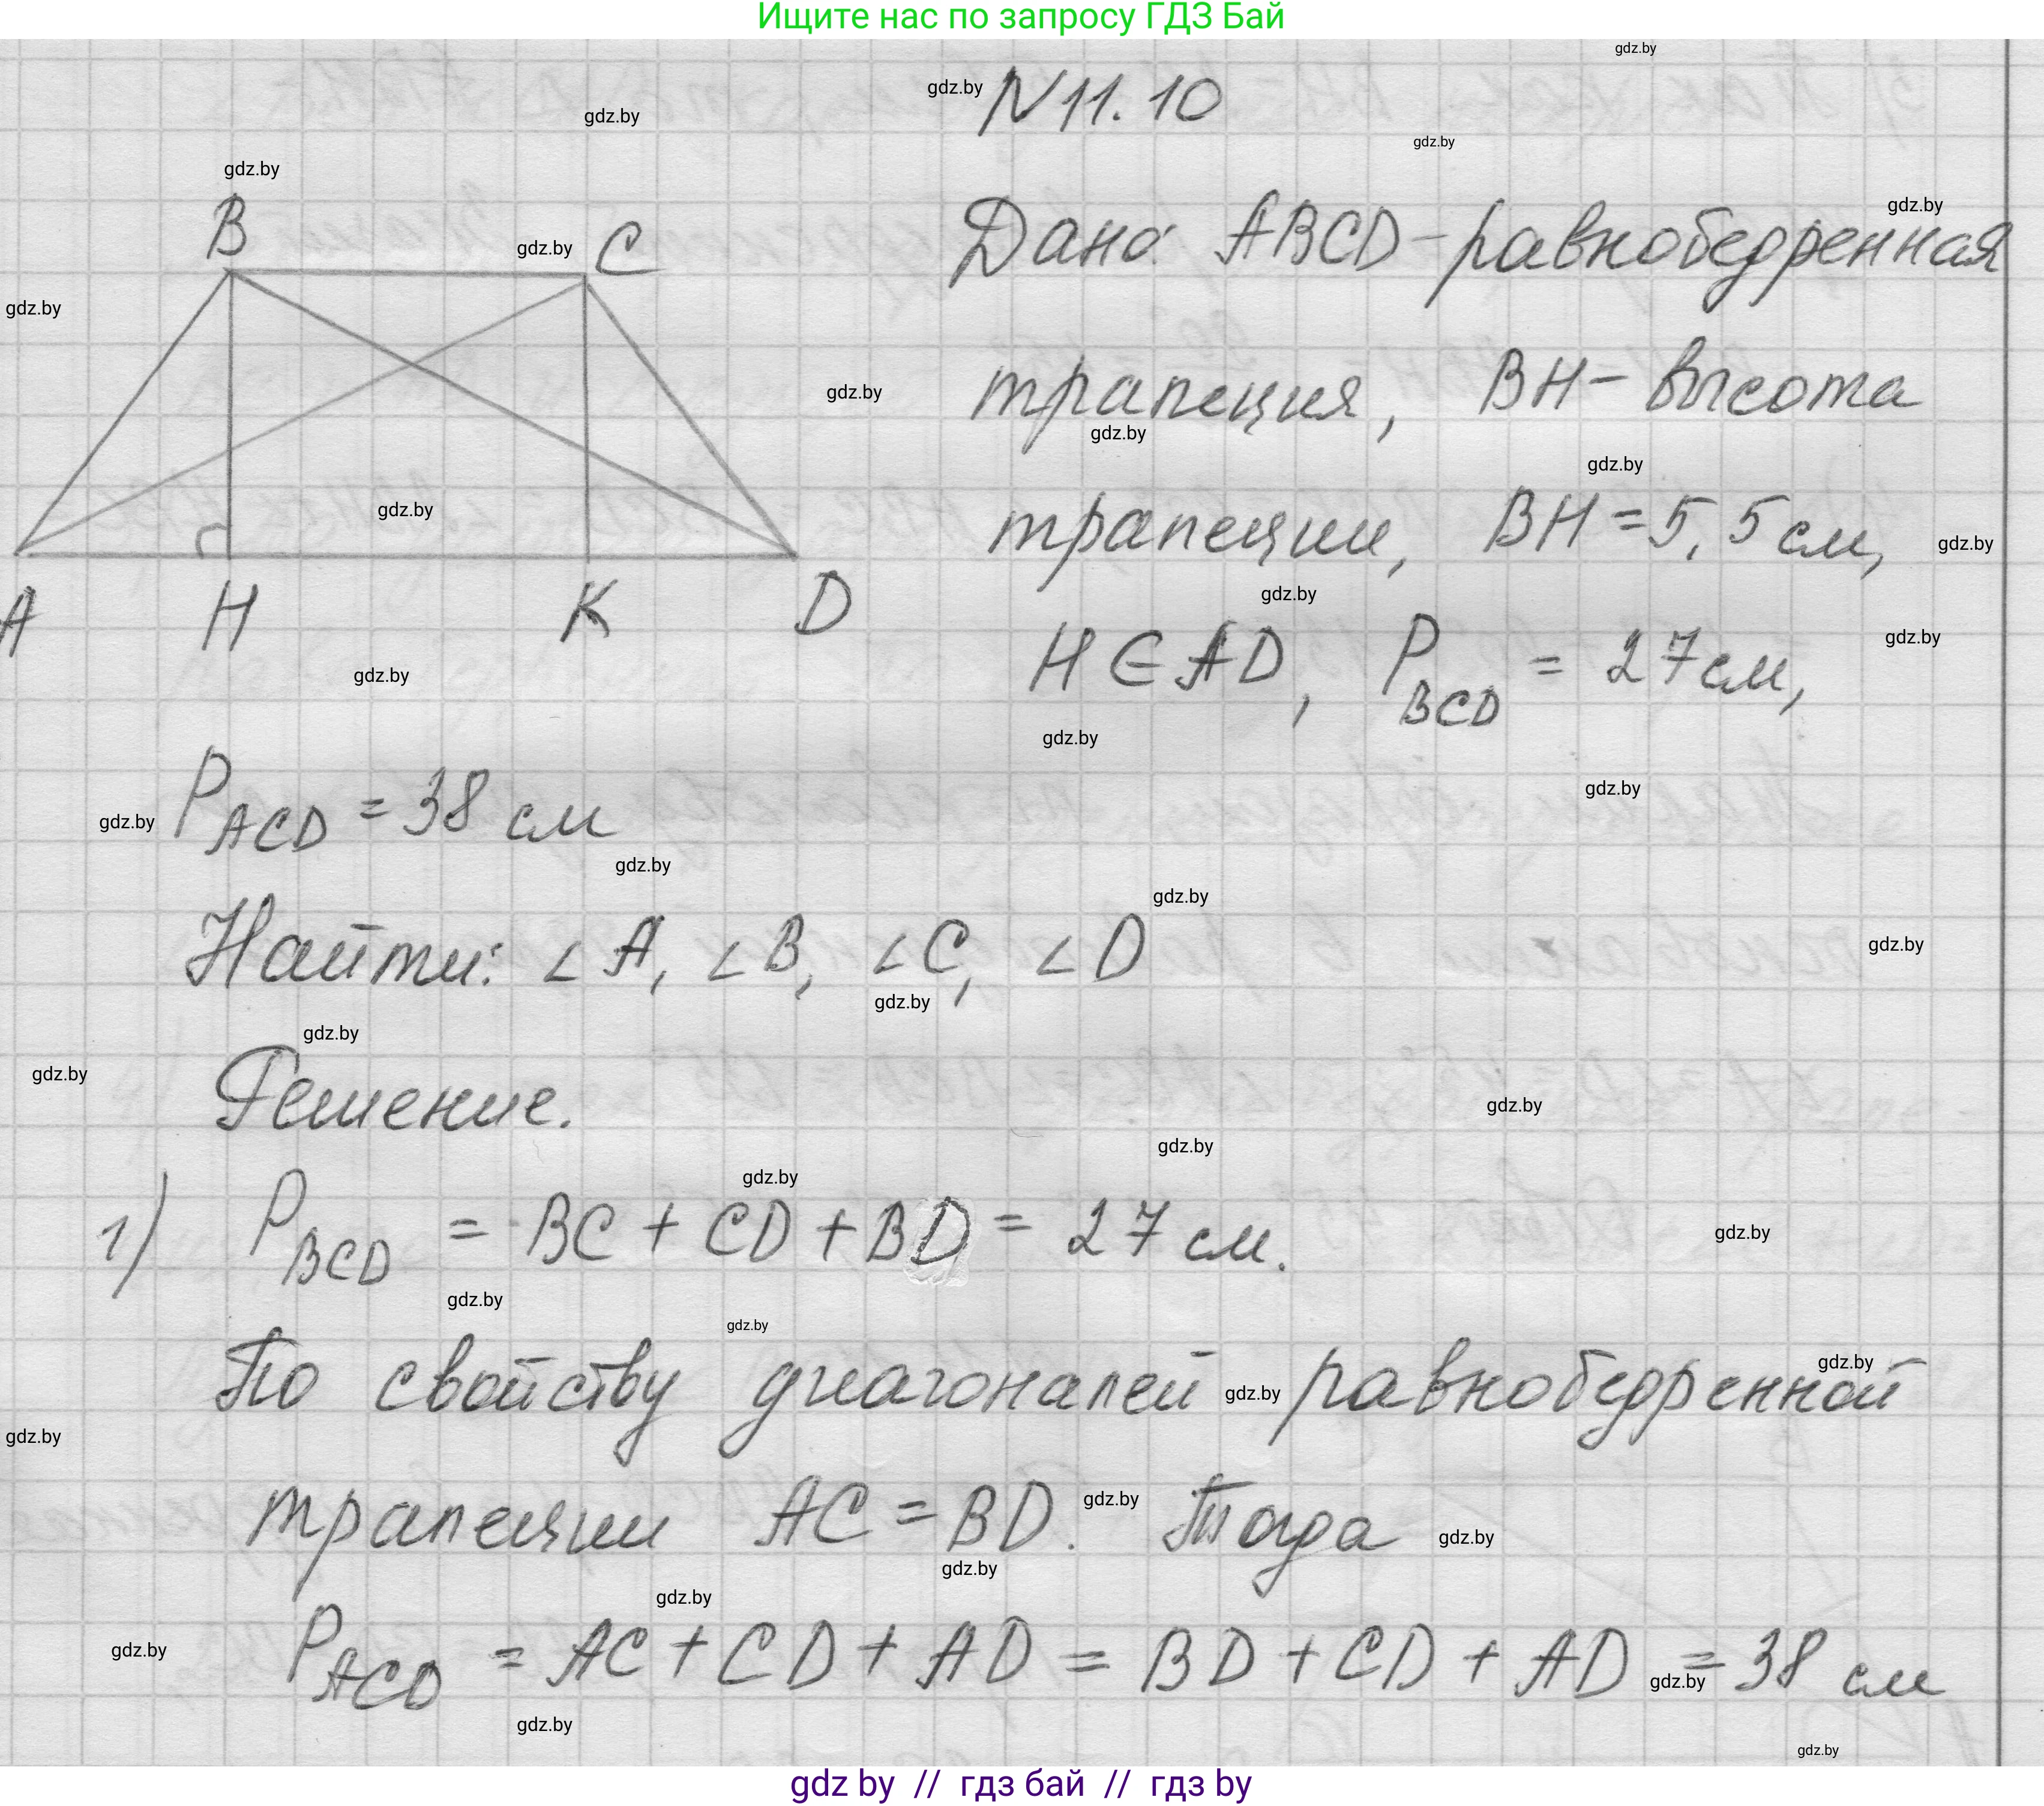 Ищите нас по запросу ГДЗ Бай
gdz.by
gdz.by
N11.10
gdz.by
gdz.by
gdz.by
B
gdz.by
C
Дано: ABCD - равнобедренная
gdz.by
gdz.by
трапеция, BH - высота
gdz.by
gdz.by
gdz.by
gdz.by
трапеции, BH = 5,5 см,
gdz.by
A H K D
gdz.by
H ∈ AD, P BCD = 27 см,
gdz.by
gdz.by
gdz.by
gdz.by
gdz.by
P ACD = 38 см
gdz.by
gdz.by
Найти: ∠A, ∠B, ∠C, ∠D
gdz.by
gdz.by
gdz.by
gdz.by
Решение.
gdz.by
gdz.by
gdz.by
1) P BCD = BC + CD + BD = 27 см.
gdz.by
gdz.by
gdz.by
По свойству диагоналей равнобедренной
gdz.by
gdz.by
gdz.by
трапеции AC = BD. Тогда
gdz.by
gdz.by
gdz.by
gdz.by
P ACD = AC + CD + AD = BD + CD + AD = 38 см
gdz.by
gdz.by
gdz.by
gdz.by
gdz by // гдз бай // гдз by